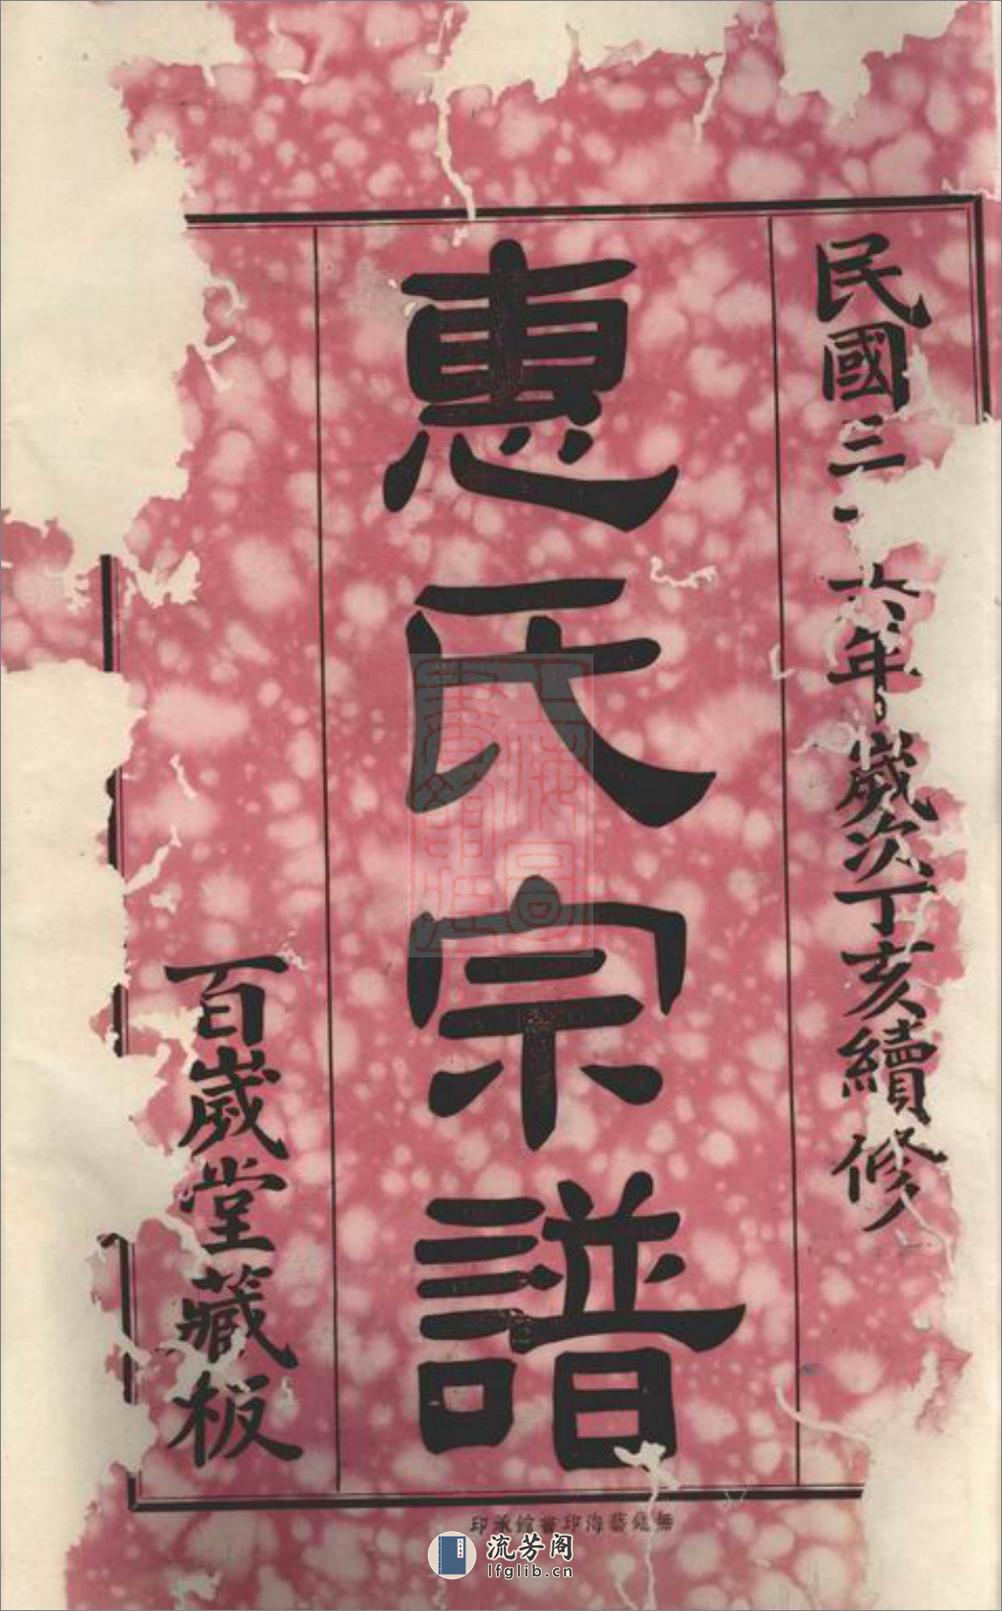 民國三十六年歲次丁亥續修
惠氏宗譜
百歲堂藏板
無錫藝海印書館承印
流芳阁
lfglib.cn